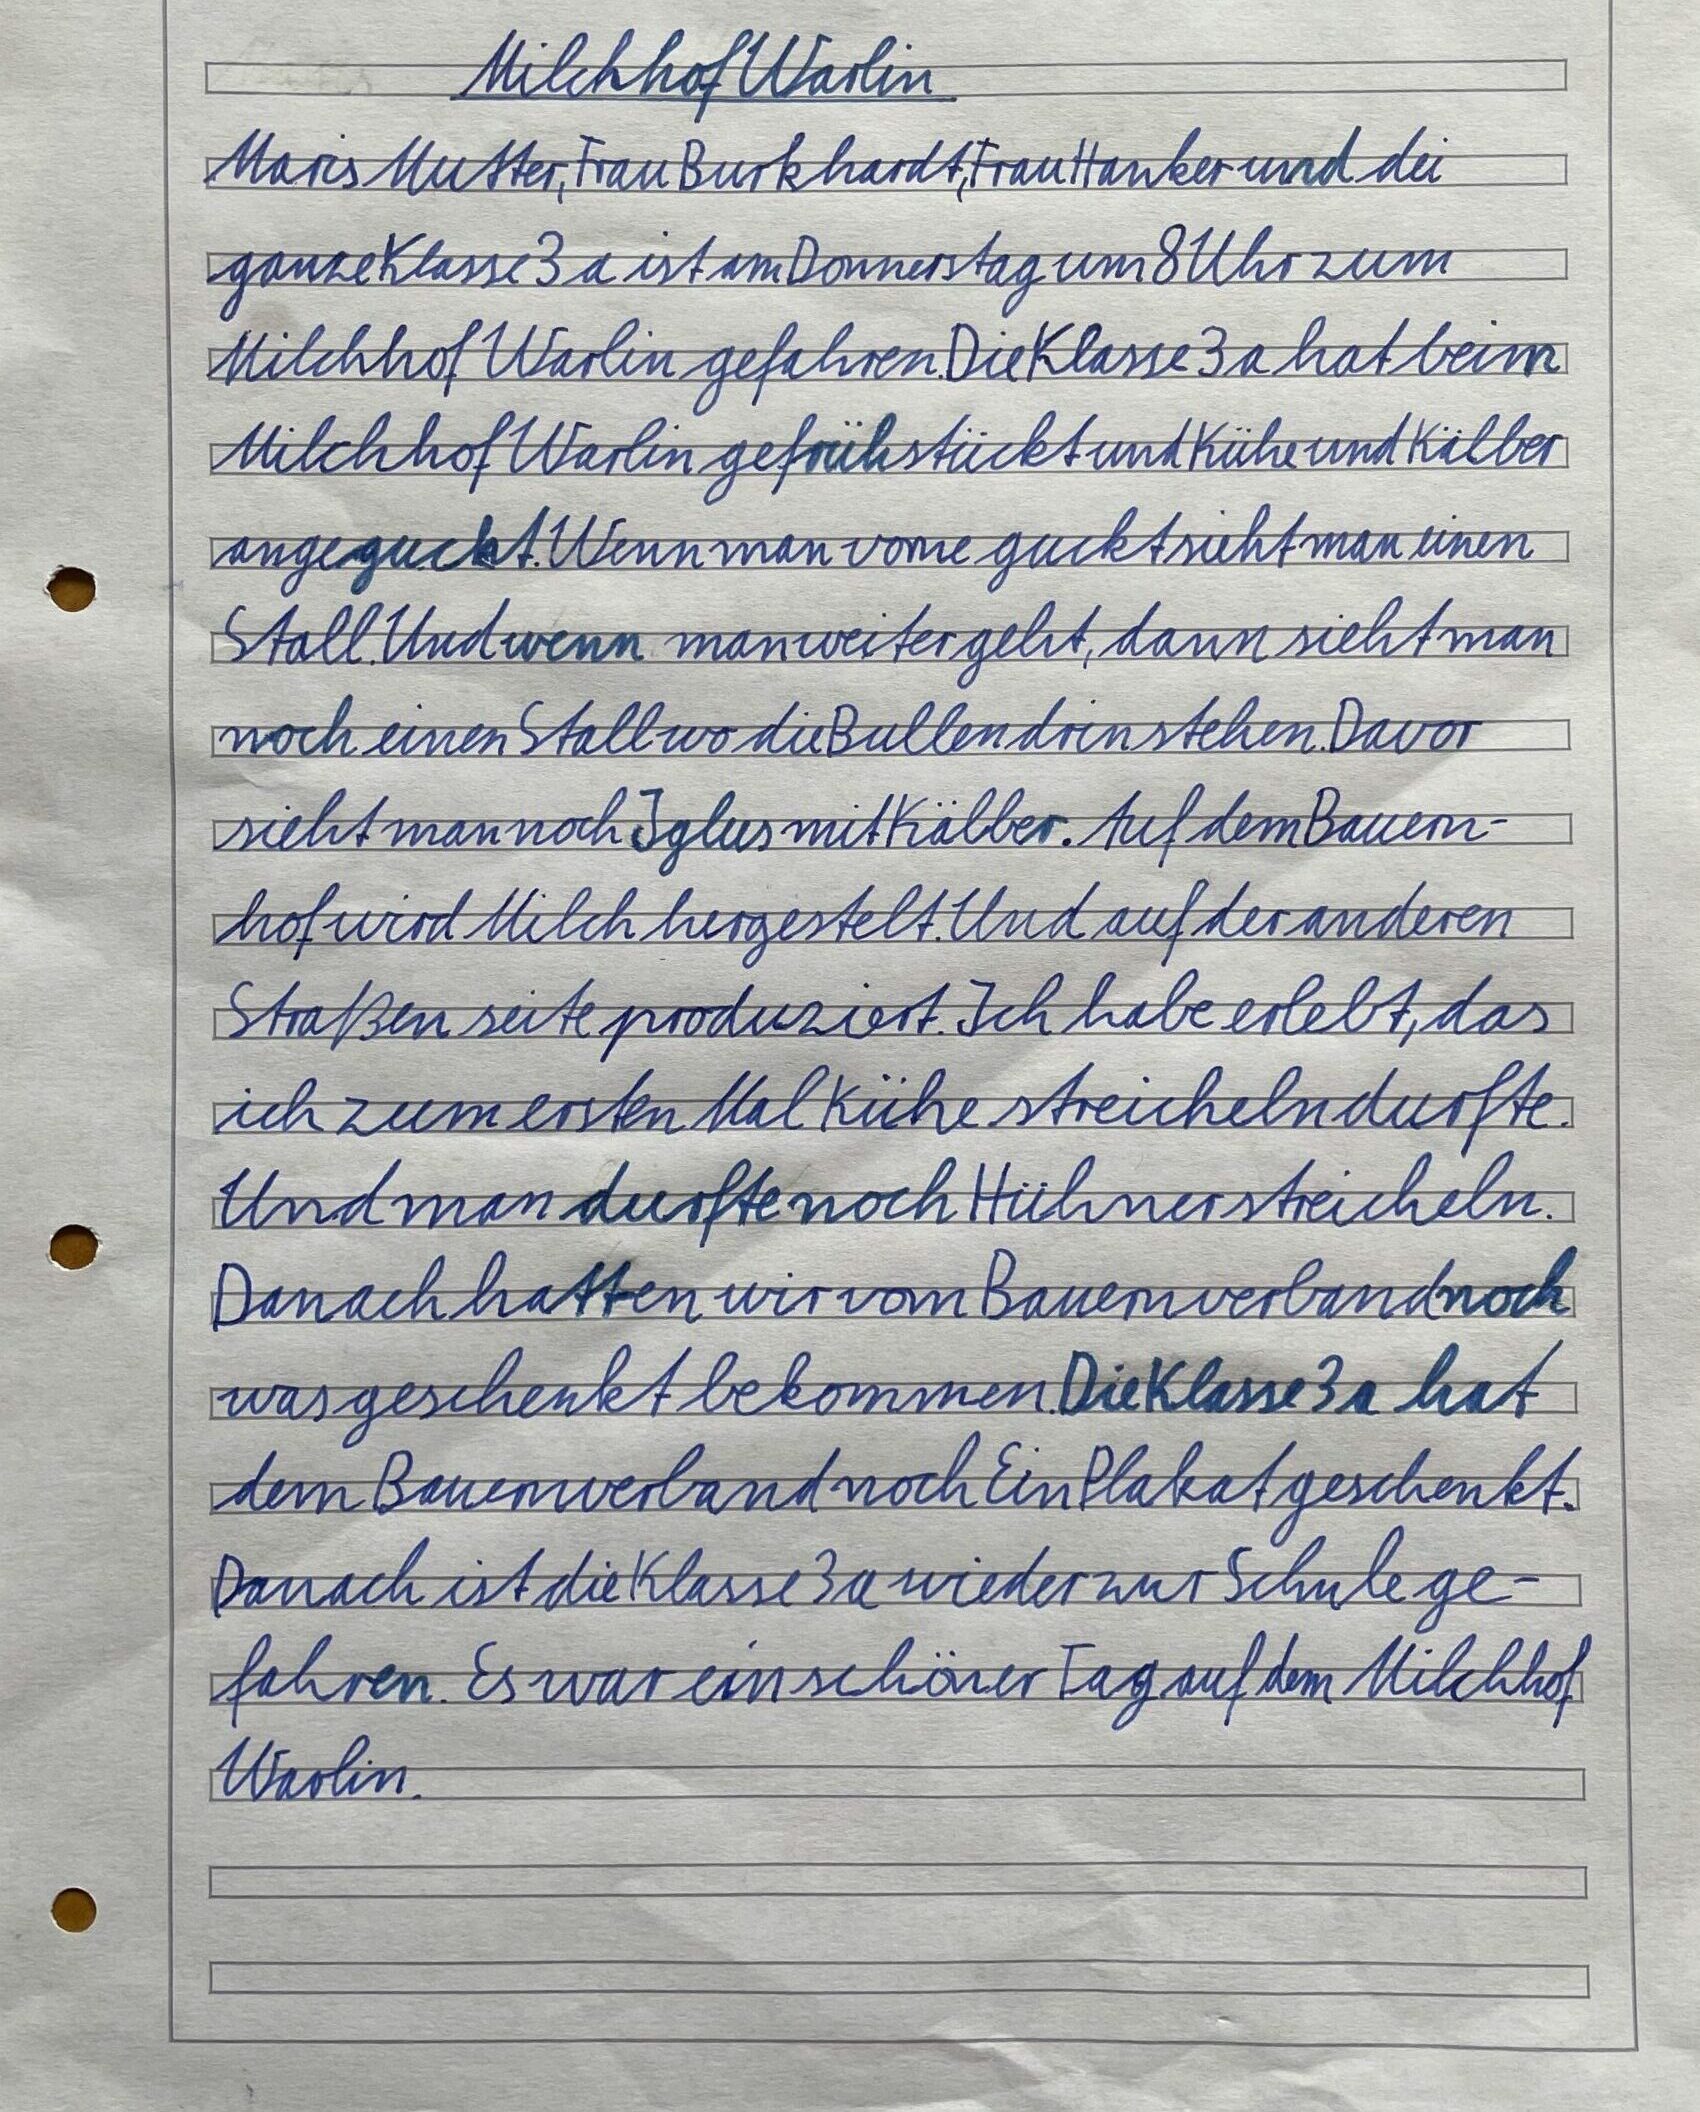 Milchhof Warlin
Maris Mutter, Frau Burkhardt, Frau Hanker und dei
ganze Klasse 3 a ist am Donnerstag um 8 Uhr zum
Milchhof Warlin gefahren. Die Klasse 3 a hat beim
Milchhof Warlin gefrühstückt und Kühe und Kälber
angeguckt. Wenn man vorne guckt sieht man einen
Stall. Und wenn man weiter geht, dann sieht man
noch einen Stall wo die Bullen drin stehen. Davor
sieht man noch Iglus mit Kälber. Auf dem Bauern-
hof wird Milch hergestelt. Und auf der anderen
Straßen seite produziert. Ich habe erlebt, das
ich zum ersten Mal Kühe streicheln durfte.
Und man durfte noch Hühner streicheln.
Danach hatten wir vom Bauernverband noch
was geschenkt bekommen. Die Klasse 3 a hat
dem Bauernverband noch Ein Plakat geschenkt.
Danach ist die Klasse 3 a wieder zur Schule ge-
fahren. Es war ein schöner Tag auf dem Milchhof
Warlin.